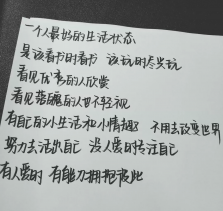 一个人最好的生活状态
是该看书时看书 该玩时尽兴玩
看见优秀的人欣赏
看见落魄的人也不轻视
有自己的小生活和小情趣 不用去改变世界
努力去活出自己 没人爱时专注自己
有人爱时 有能力拥抱彼此